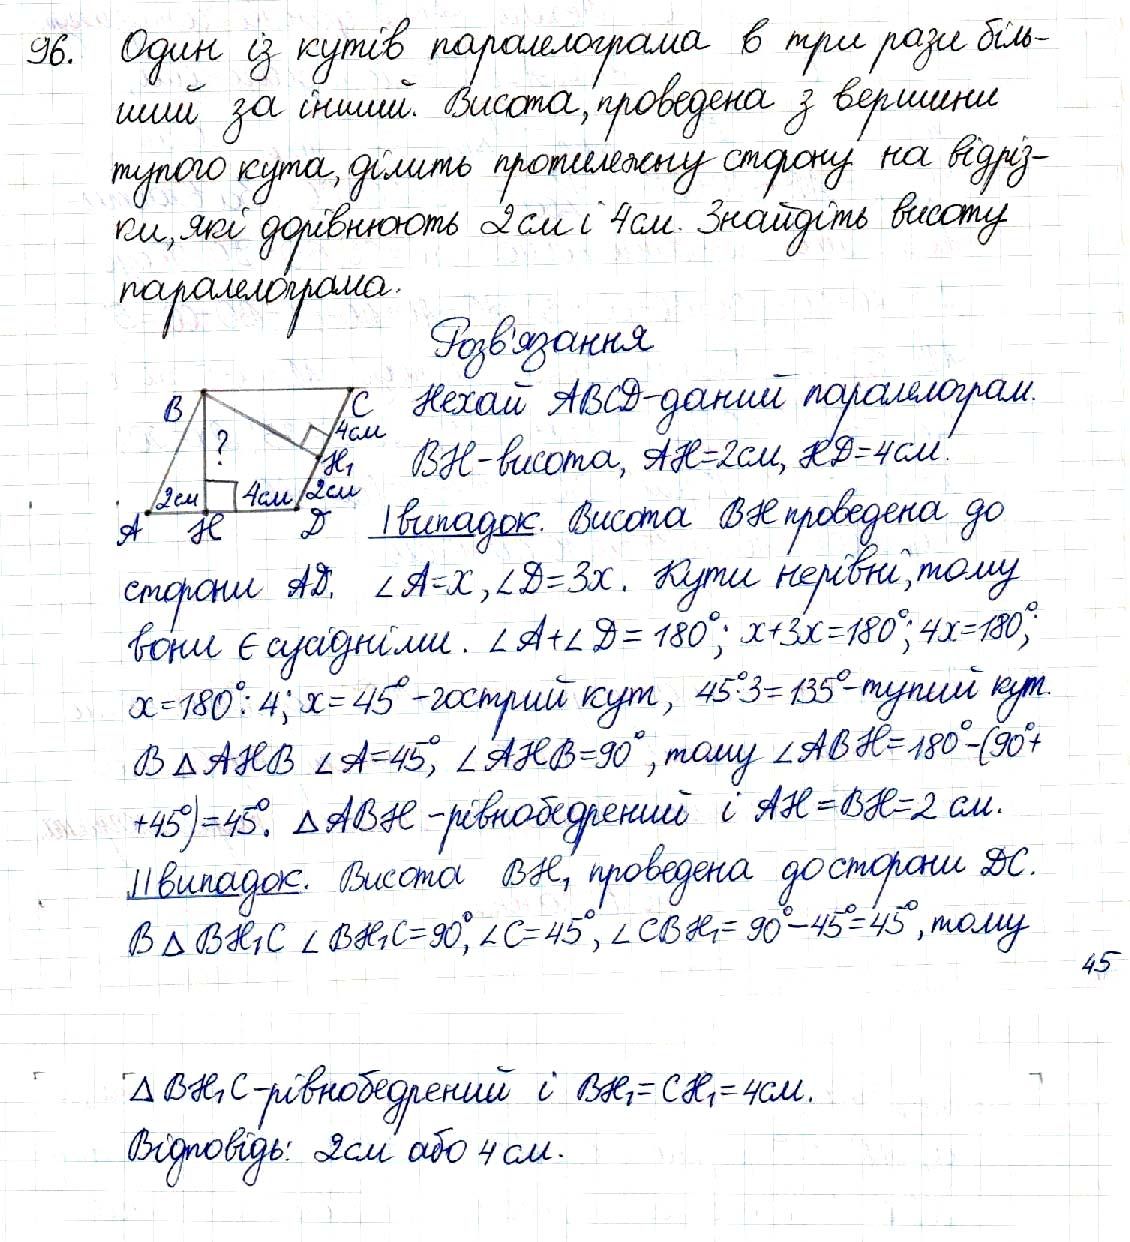 96. Один із кутів паралелограма в три рази біль-
ший за інший. Висота, проведена з вершини
тупого кута, ділить протилежну сторону на відріз-
ки, які дорівнюють 2см і 4см. Знайдіть висоту
паралелограма.
Розв'язання
B C Нехай ABCD-даний паралелограм.
? 4см
H₁ BH-висота, AH=2см, HD=4см.
2см 4см 2см
A H D I випадок. Висота BH проведена до
сторони AD. ∠A=x, ∠D=3x. Кути нерівні, тому
вони є сусідніми. ∠A+∠D=180°; x+3x=180°; 4x=180°;
x=180°:4; x=45°-гострий кут, 45°·3=135°-тупий кут.
В △AHB ∠A=45°, ∠AHB=90°, тому ∠ABH=180°-(90°+
+45°)=45°. △ABH-рівнобедрений і AH=BH=2 см.
II випадок. Висота BH₁ проведена до сторони DC.
В △BH₁C ∠BH₁C=90°, ∠C=45°, ∠CBH₁=90°-45°=45°, тому
45
△BH₁C-рівнобедрений і BH₁=CH₁=4см.
Відповідь: 2см або 4см.